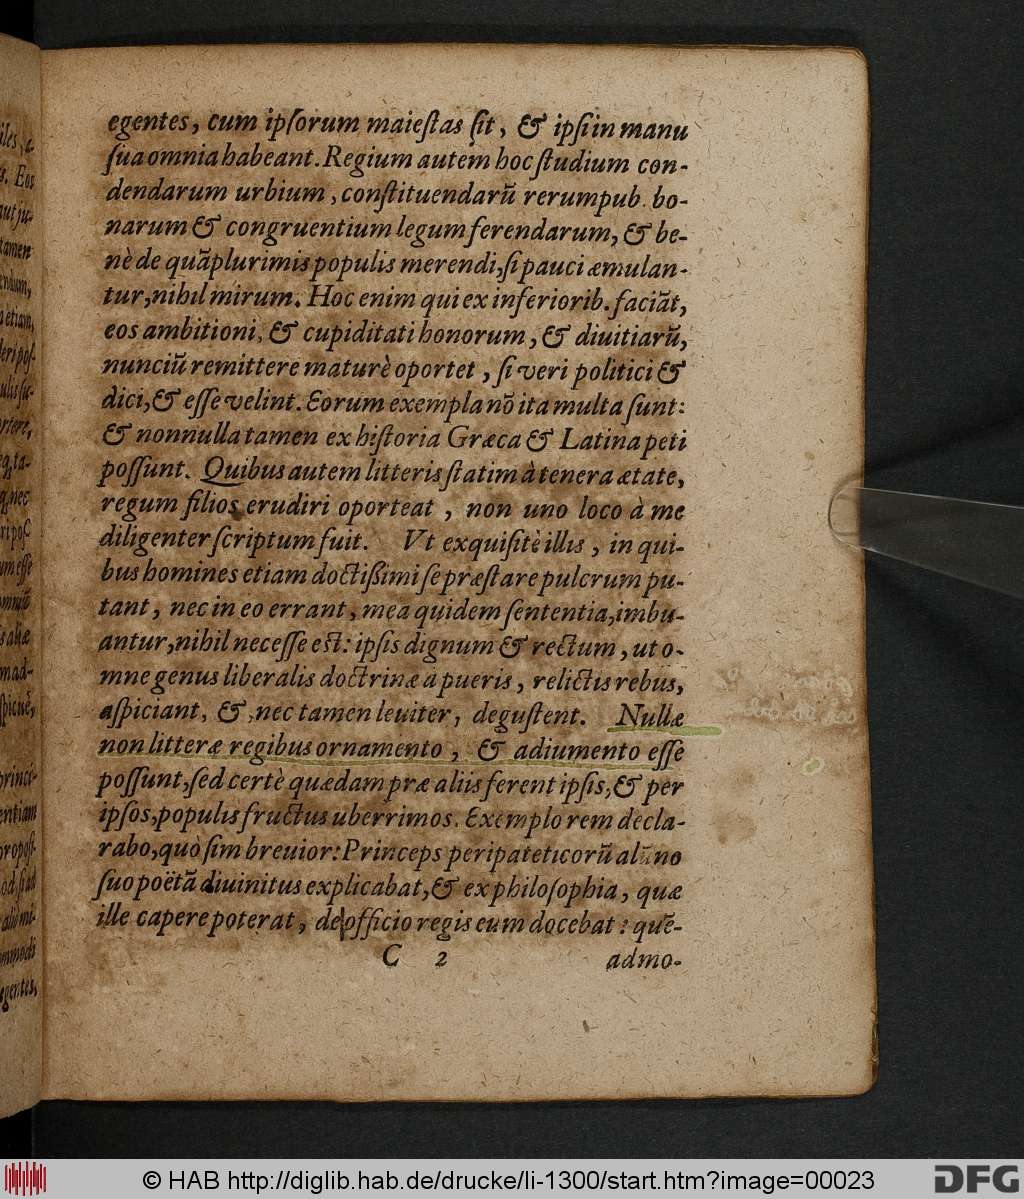 egentes, cum ipſorum maieſtas ſit, & ipſi in manu
ſua omnia habeant. Regium autem hoc ſtudium con-
dendarum urbium, conſtituendarũ rerumpub. bo-
narum & congruentium legum ferendarum, & be-
nè de quã plurimis populis merendi, ſi pauci æmulan-
tur, nihil mirum. Hoc enim qui ex inferiorib. faciãt,
eos ambitioni, & cupiditati honorum, & diuitiarũ,
nunciũ remittere maturè oportet, ſi veri politici &
dici, & eſſe velint. Eorum exempla nõ ita multa ſunt:
& nonnulla tamen ex hiſtoria Græca & Latina peti
poſſunt. Quibus autem litteris ſtatim à tenera ætate,
regum filios erudiri oporteat, non uno loco à me
diligenter ſcriptum fuit. Vt exquiſitè illis, in qui-
bus homines etiam doctißimi ſe præſtare pulcrum pu-
tant, nec in eo errant, mea quidem ſententia, imbu-
antur, nihil neceſſe est: ipſis dignum & rectum, ut o-
mne genus liberalis doctrinæ a pueris, relictis rebus,
aſpiciant, &, nec tamen leuiter, deguſtent. Nullæ
non litteræ regibus ornamento, & adiumento eſſe
poſſunt, ſed certè quædam præ aliis ferent ipſis, & per
ipſos, populis fructus uberrimos. Exemplo rem decla-
rabo, quò ſim breuior: Princeps peripateticorũ alũno
ſuo poëtã diuinitus explicabat, & ex philoſophia, quæ
ille capere poterat, de officio regis eum docebat: quẽ-
C 2 admo-
© HAB http://diglib.hab.de/drucke/li-1300/start.htm?image=00023
DFG